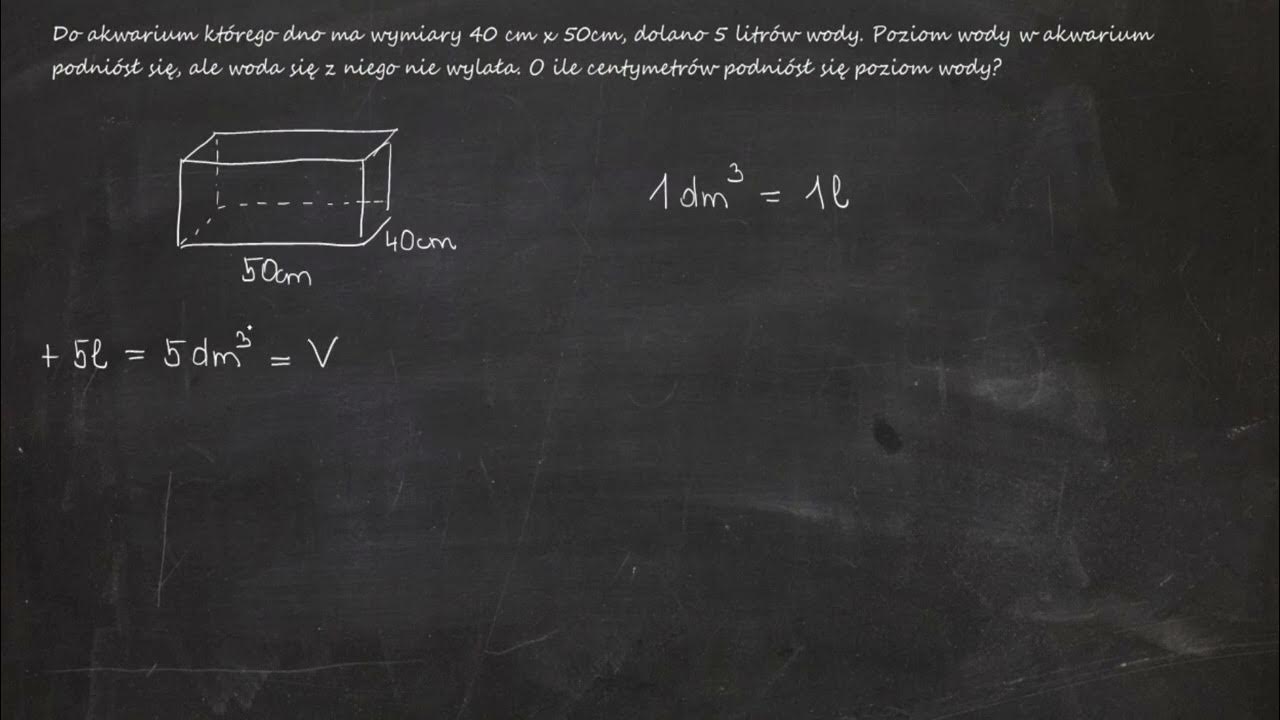 Do akwarium którego dno ma wymiary 40 cm x 50cm, dolano 5 litrów wody. Poziom wody w akwarium
podniósł się, ale woda się z niego nie wylała. O ile centymetrów podniósł się poziom wody?
1dm³ = 1l
40cm
50cm
+ 5l = 5dm³ = V